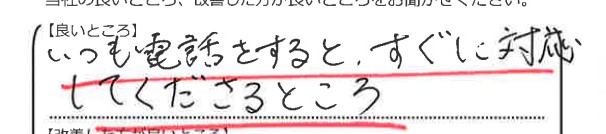 当社の良いところ、改善した方が良いところをお聞かせください。
【良いところ】
いつも電話をすると、すぐに対応
してくださるところ
【改善した方が良いところ】